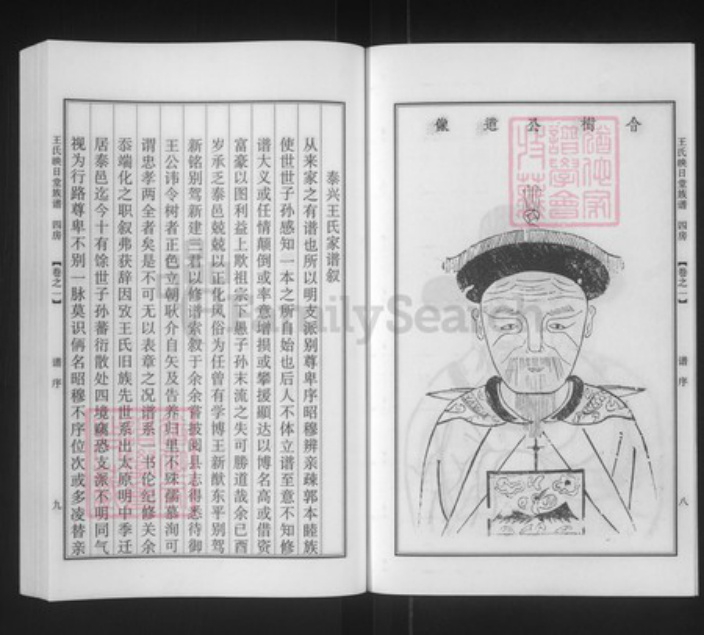 王氏映日堂族谱 四房 【卷之一】 谱序 八
令樹公道像
泰兴王氏家谱叙
从来家之有谱也所以明支派别尊卑序昭穆辨亲疎郭本睦族
使世世子孙感知一本之所自始也后人不体立谱至意不知修
谱大义或任情颠倒或率意增损或攀援顯达以博名高或借资
富豪以图利益上欺祖宗下愚子孙末流之失可勝道哉余已酉
岁承乏泰邑兢兢以正化风俗为任曾有学博王新猷东平别驾
新铭别驾新建三君以修谱索叙于余余嘗披阅县志得悉待御
王公讳令树者正色立朝耿介自矢及告养归里不殊孺慕洵可
谓忠孝两全者矣是不可无以表章之况谱系 书伦纪修关余
忝端化之职叙弗获辞因攷王氏旧族先世系出太原明中季迁
居泰邑迄今十有馀世子孙蕃衍散处四境窃恐支派不明同气
视为行路尊卑不别一脉莫识俩名昭穆不序位次或多凌替亲
王氏映日堂族谱 四房 【卷之一】 谱序 九
FamilySearch